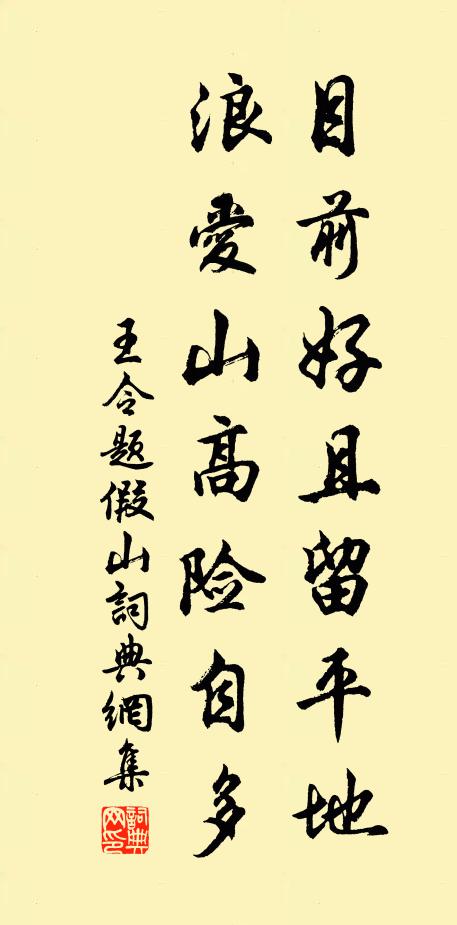 目前好且留平地
浪愛山高险自多
王令题假山詞典網集
詞典网印